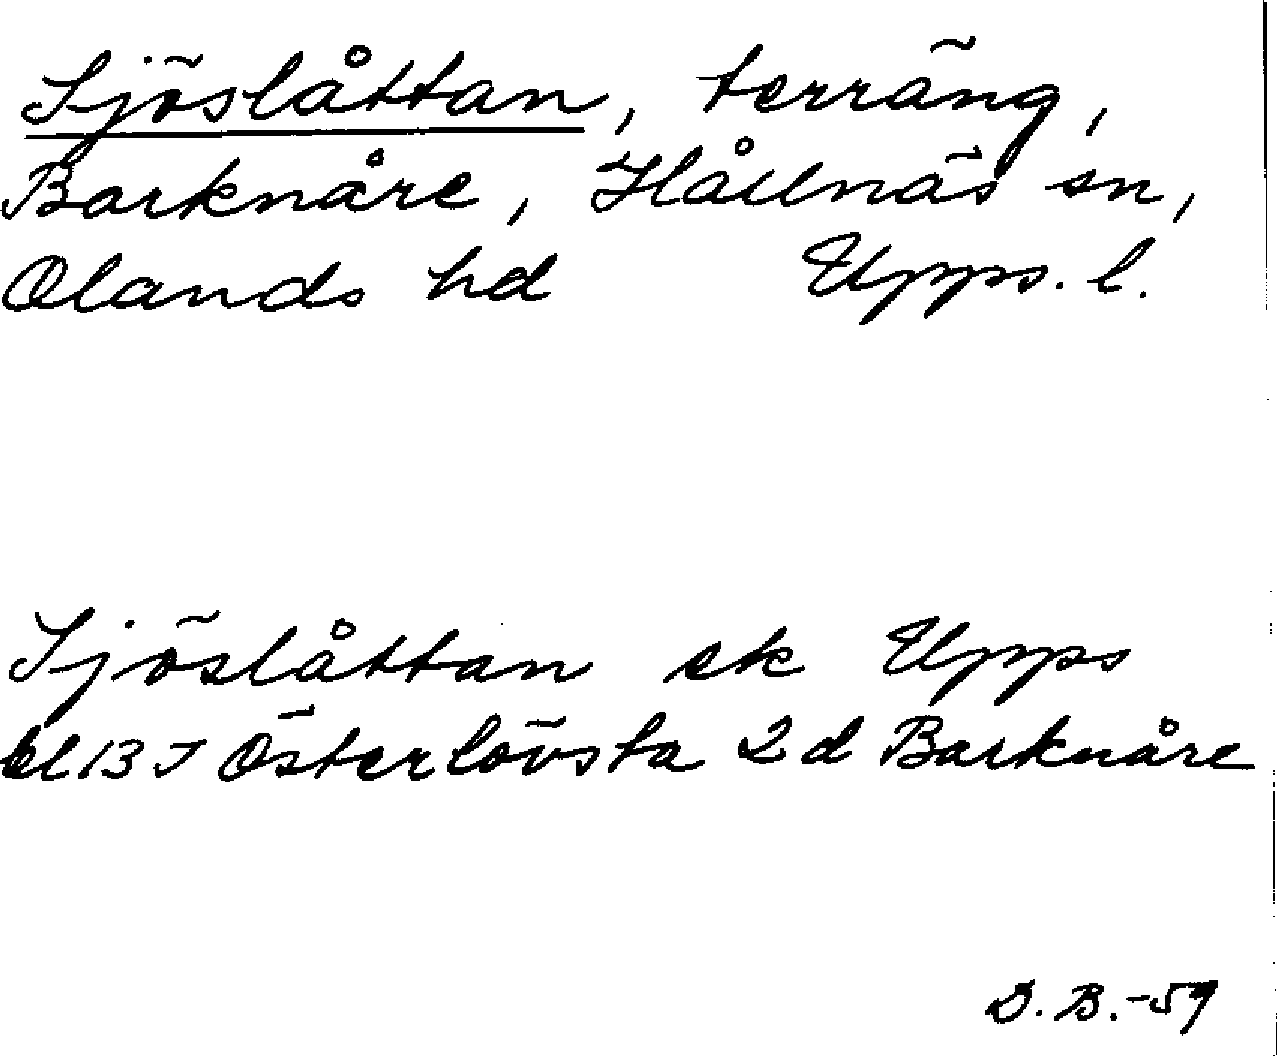 Sjöslåttan, terräng,
Barknåre, Hållnäs sn,
Olands hd Upps. l.
Sjöslåttan ek Upps
bl 13 I Österlövsta 2d Barknåre
D. B. -59